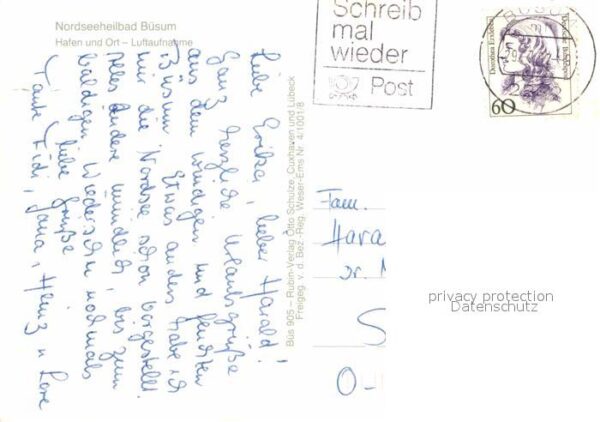 Nordseeheilbad Büsum
Hafen und Ort – Luftaufnahme
Liebe Erika, lieber Harald!
Ganz herzliche Urlaubsgrüße
aus dem windigen und feuchten
Büsum. Etwas anders habe ich
mir die Nordsee schon vorgestellt.
Alles andere mündlich, bis zum
baldigen Wiedersehn nochmals
liebe Grüße
Tante Heinz u Lore
Büs 905 – Rubin-Verlag Otto Schulze, Cuxhaven und Lübeck
Freigeg. v. d. Bez.-Reg. Weser-Ems Nr. 4/1001/8
Schreib
mal
wieder
Post
BÜSUM
Dorothea Erxleben
Deutsche Bundespost
60
Fam.
Hara
S
O-
privacy protection
Datenschutz